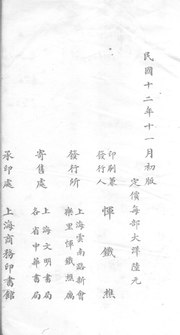 民國十二年十一月初版
定價每部大洋陸元
印刷兼
發行人
惲鐵樵
發行所
上海雲南路新會
樂里惲鐵樵寓
寄售處
上海文明書局
各省中華書局
承印處
上海商務印書館